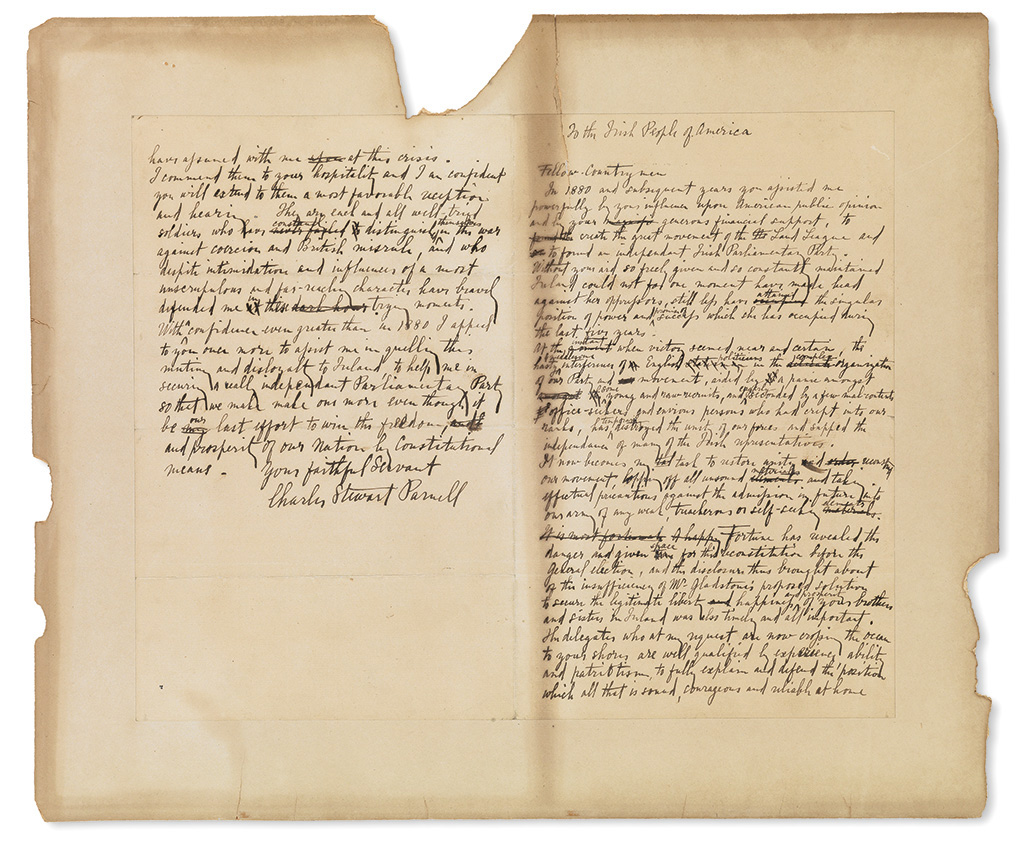 To the Irish People of America
Fellow-Countrymen
In 1880 and subsequent years you assisted me
powerfully by your influence upon American public opinion
and by your generous financial support, to
create the great movement of the Land League and
to found an independent Irish Parliamentary Party.
Without your aid, so freely given and so constantly maintained
Ireland could not for one moment have made head
against her oppressors, still less have attained the singular
position of power and success which she has occupied during
the last five years.
At the instant when victory seemed near and certain, the
interference of English politicians in the complex organization
of our Party and movement, aided by a panic amongst
some young and raw recruits, and seconded by a few malcontents
office-seekers and envious persons who had crept into our
ranks, has temporarily destroyed the unity of our forces and sapped the
independence of many of the Irish representatives.
It now becomes my task to restore unity and reconstruct
our movement, lopping off all unsound materials and taking
effectual precautions against the admission in future into
our army of any weak, treacherous or self-seeking elements.
Fortune has revealed this
danger and given space for this reconstitution before the
General election, and the disclosure thus brought about
of the insufficiency of Mr. Gladstone's proposed solution
to secure the legitimate liberty happiness and prosperity of your brothers
and sisters in Ireland was also timely and all important.
The delegates who at my request are now crossing the ocean
to your shores are well qualified by experience, ability
and patriotism, to fully explain and defend the position
which all that is sound, courageous and reliable at home
have assumed with me at this crisis.
I commend them to your hospitality and I am confident
you will extend to them a most favorable reception
and hearing. They are each and all well tried
soldiers who have constantly distinguished themselves in this war
against coercion and British misrule, and who
despite intimidation and influences of a most
unscrupulous and far-reaching character have bravely
defended me in trying moments.
With confidence even greater than in 1880 I appeal
to you once more to assist me in quelling this
mutiny and disloyalty to Ireland, to help me in
securing a really independent Parliamentary Party
so that we may make one more even though it
be our last effort to win the freedom,
and prosperity of our Nation by Constitutional
means.
Your faithful Servant
Charles Stewart Parnell